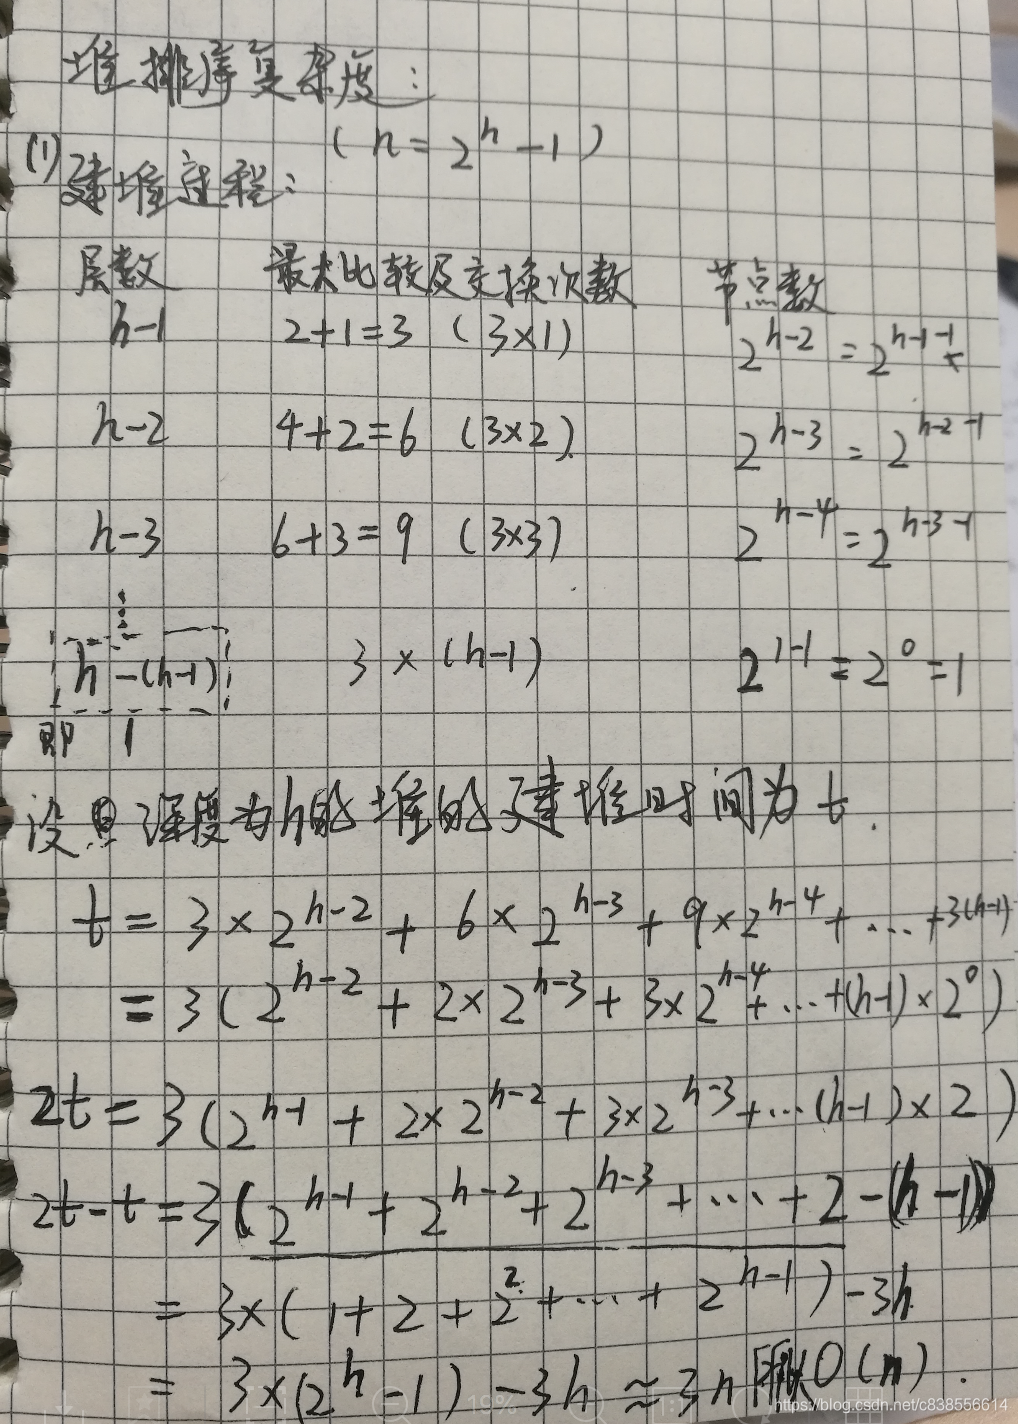 堆排序复杂度:
(n = 2^h - 1)
(1) 建堆过程:
层数 最大比较及交换次数 节点数
h-1 2+1=3 (3×1) 2^{h-2} = 2^{h-1-1}
h-2 4+2=6 (3×2). 2^{h-3} = 2^{h-2-1}
h-3 6+3=9 (3×3) 2^{h-4} = 2^{h-3-1}
⋮
h-(h-1) 3×(h-1) 2^{1-1} = 2^0 = 1
即 1
设 深度为h的堆的建堆时间为t.
t = 3×2^{h-2} + 6×2^{h-3} + 9×2^{h-4} + ... + 3(h-1)
= 3(2^{h-2} + 2×2^{h-3} + 3×2^{h-4} + ... + (h-1)×2^0)
2t = 3(2^{h-1} + 2×2^{h-2} + 3×2^{h-3} + ... (h-1)×2)
2t-t = 3(2^{h-1} + 2^{h-2} + 2^{h-3} + ... + 2 - (h-1))
= 3×(1+2+2^2+...+2^{h-1}) - 3h
= 3×(2^h-1) - 3h ≈ 3n O(n).
19%
1:1
https://blog.csdn.net/c838556614